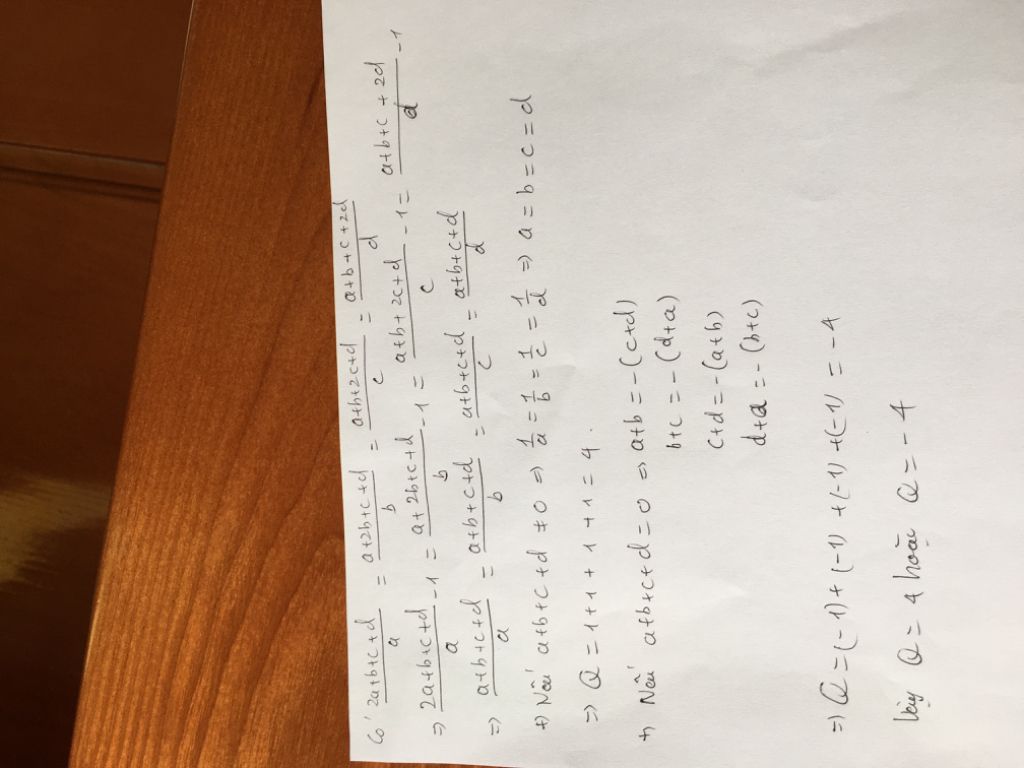 Có 2a+b+c+d/a = a+2b+c+d/b = a+b+2c+d/c = a+b+c+2d/d
=> 2a+b+c+d/a - 1 = a+2b+c+d/b - 1 = a+b+2c+d/c - 1 = a+b+c+2d/d - 1
=> a+b+c+d/a = a+b+c+d/b = a+b+c+d/c = a+b+c+d/d
+) Nếu a+b+c+d ≠ 0 => 1/a = 1/b = 1/c = 1/d => a = b = c = d
=> Q = 1+1+1+1 = 4.
+) Nếu a+b+c+d = 0 => a+b = -(c+d)
b+c = -(d+a)
c+d = -(a+b)
d+a = -(b+c)
=> Q = (-1) + (-1) + (-1) + (-1) = -4
Vậy Q = 4 hoặc Q = -4